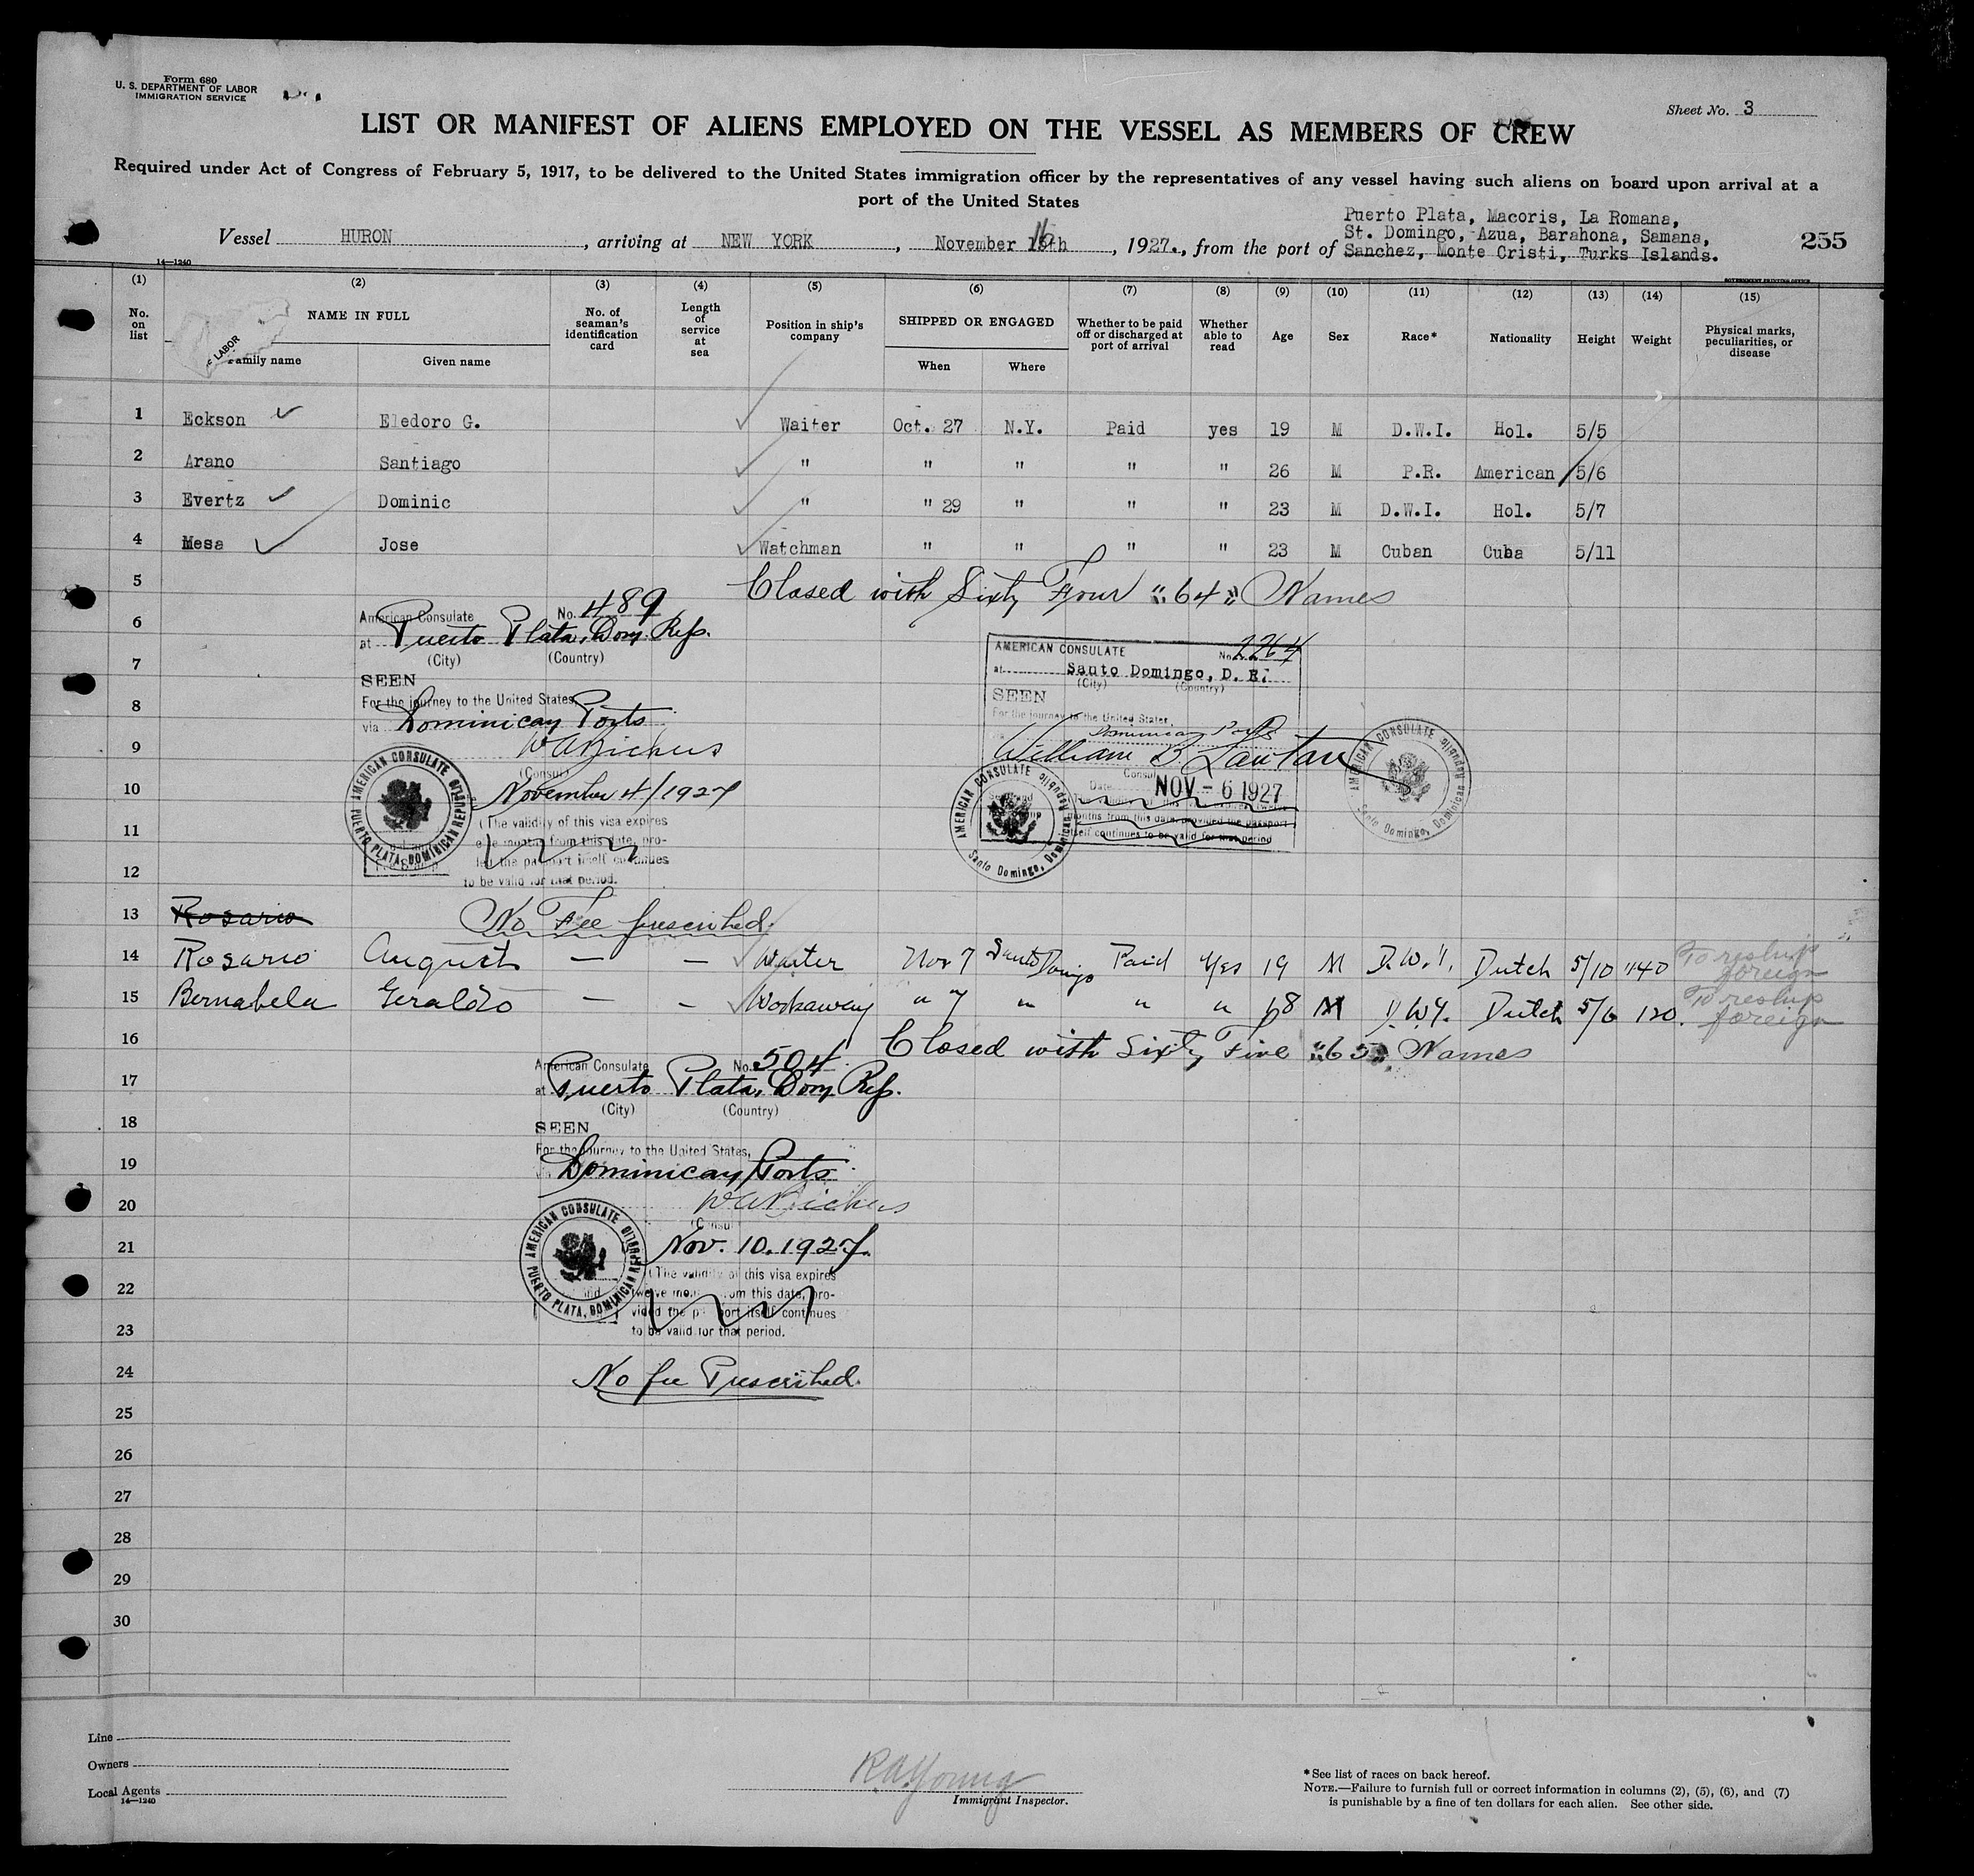 Form 680
U. S. DEPARTMENT OF LABOR
IMMIGRATION SERVICE
Sheet No. 3
LIST OR MANIFEST OF ALIENS EMPLOYED ON THE VESSEL AS MEMBERS OF CREW
Required under Act of Congress of February 5, 1917, to be delivered to the United States immigration officer by the representatives of any vessel having such aliens on board upon arrival at a
port of the United States
Puerto Plata, Macoris, La Romana,
St. Domingo, Azua, Barahona, Samana,
Vessel HURON, arriving at NEW YORK, November 16th, 1927., from the port of Sanchez, Monte Cristi, Turks Islands.
255
14—1240
GOVERNMENT PRINTING OFFICE
(1) (2) (3) (4) (5) (6) (7) (8) (9) (10) (11) (12) (13) (14) (15)
No. on list
NAME IN FULL
Family name
Given name
LABOR
No. of seaman's identification card
Length of service at sea
Position in ship's company
SHIPPED OR ENGAGED
When
Where
Whether to be paid off or discharged at port of arrival
Whether able to read
Age
Sex
Race*
Nationality
Height
Weight
Physical marks, peculiarities, or disease
1 Eckson Eledoro G. Waiter Oct. 27 N.Y. Paid yes 19 M D.W.I. Hol. 5/5
2 Arano Santiago " " " " " 26 M P.R. American 5/6
3 Evertz Dominic " " 29 " " " 23 M D.W.I. Hol. 5/7
4 Mesa Jose Watchman " " " " 23 M Cuban Cuba 5/11
5 Closed with Sixty Four "64" Names
American Consulate No. 489
6 at Puerto Plata, Dom. Rep.
(City) (Country)
AMERICAN CONSULATE No. 2264
7 at Santo Domingo, D. R.
(City) (Country)
SEEN
SEEN
8 For the journey to the United States,
via Dominican Ports
For the journey to the United States,
Dominican Ports
9
(Consul)
William B. Lawton
Consul
AMERICAN CONSULATE PUERTO PLATA, DOMINICAN REPUBLIC
10 November 4/1927
Date NOV - 6 1927
AMERICAN CONSULATE Santo Domingo, Dominican Republic
AMERICAN CONSULATE Santo Domingo, Dominican Republic
11 (The validity of this visa expires
months from this date, provided the passport
months from this date, pro-
itself continues to be valid for that period
12 vided the passport itself continues
to be valid for that period.
13 Rosario No Fee prescribed.
14 Rosario August — — Waiter Nov 7 Santo Domingo Paid Yes 19 M D.W.I. Dutch 5/10 140 To reship foreign
15 Bernabela Geraldo — — Workaway " 7 " " " 68 M D.W.I. Dutch 5/6 120. To reship foreign
16 Closed with Sixty Five "65" Names
American Consulate No. 504
17 at Puerto Plata, Dom. Rep.
(City) (Country)
18 SEEN
For the journey to the United States,
19 via Dominican Ports
20
(Consul)
AMERICAN CONSULATE PUERTO PLATA, DOMINICAN REPUBLIC
21 Nov. 10. 1927.
(The validity of this visa expires
22 twelve months from this date, pro-
vided the passport itself continues
23 to be valid for that period.
24 No fee Prescribed.
25
26
27
28
29
30
Line
Owners
Local Agents
14—1240
R A Young
Immigrant Inspector.
*See list of races on back hereof.
NOTE.—Failure to furnish full or correct information in columns (2), (5), (6), and (7)
is punishable by a fine of ten dollars for each alien. See other side.